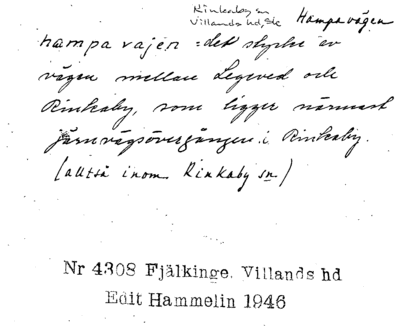 Rinkaby sn
Villands hd, Sk Hampavägen
hampavajen = det stycke av
vägen mellan Legeved och
Rinkaby, som ligger närmast
järnvägsövergången i Rinkaby.
(alltså inom Rinkaby sn.)
Nr 4308 Fjälkinge. Villands hd
Edit Hammelin 1946